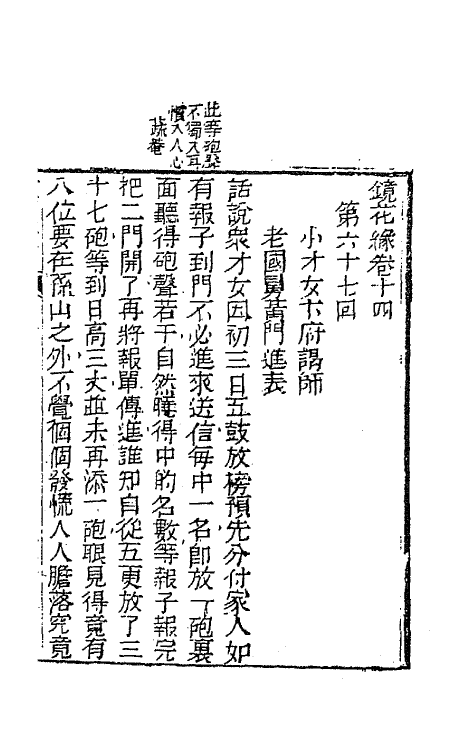 鏡花緣卷十四
第六十七回
小才女卞府謁師
老國舅黃門進表
話說衆才女因初三日五鼓放榜預先分付家人如
有報子到門不必進來送信每中一名卽放一砲裏
面聽得砲聲若干自然曉得中的名數等報子報完
把二門開了再將報單傳進誰知自從五更放了三
十七砲等到日高三丈並未再添一砲眼見得竟有
八位要在孫山之外不覺個個發慌人人膽落究竟
此等砲聲
不獨入耳
慣入人心
蔬菴